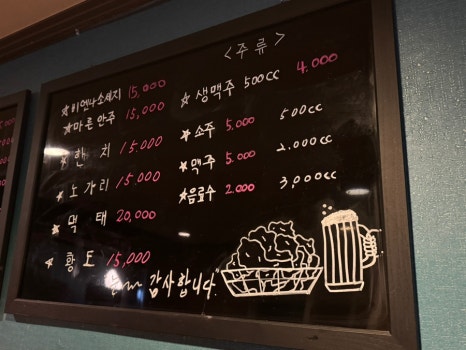 <주류>
★비엔나소세지 15,000
★마른안주 15,000
★한 치 15.000
★노가리 15,000
★먹 태 20,000
★황 도 15,000
★생맥주 500cc 4.000
★소주 5,000
500cc
★맥주 5.000
2.000cc
★음료수 2.000
3,000cc
감사합니다.